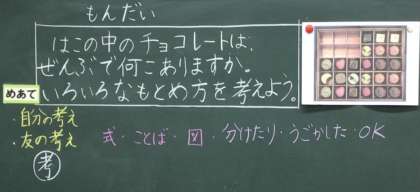 もんだい
はこの中のチョコレートは、
ぜんぶで何こありますか。
いろいろなもとめ方を考えよう。
めあて
・自分の考え
・友の考え
考
式・ことば・図・分けたり・うごかした・OK